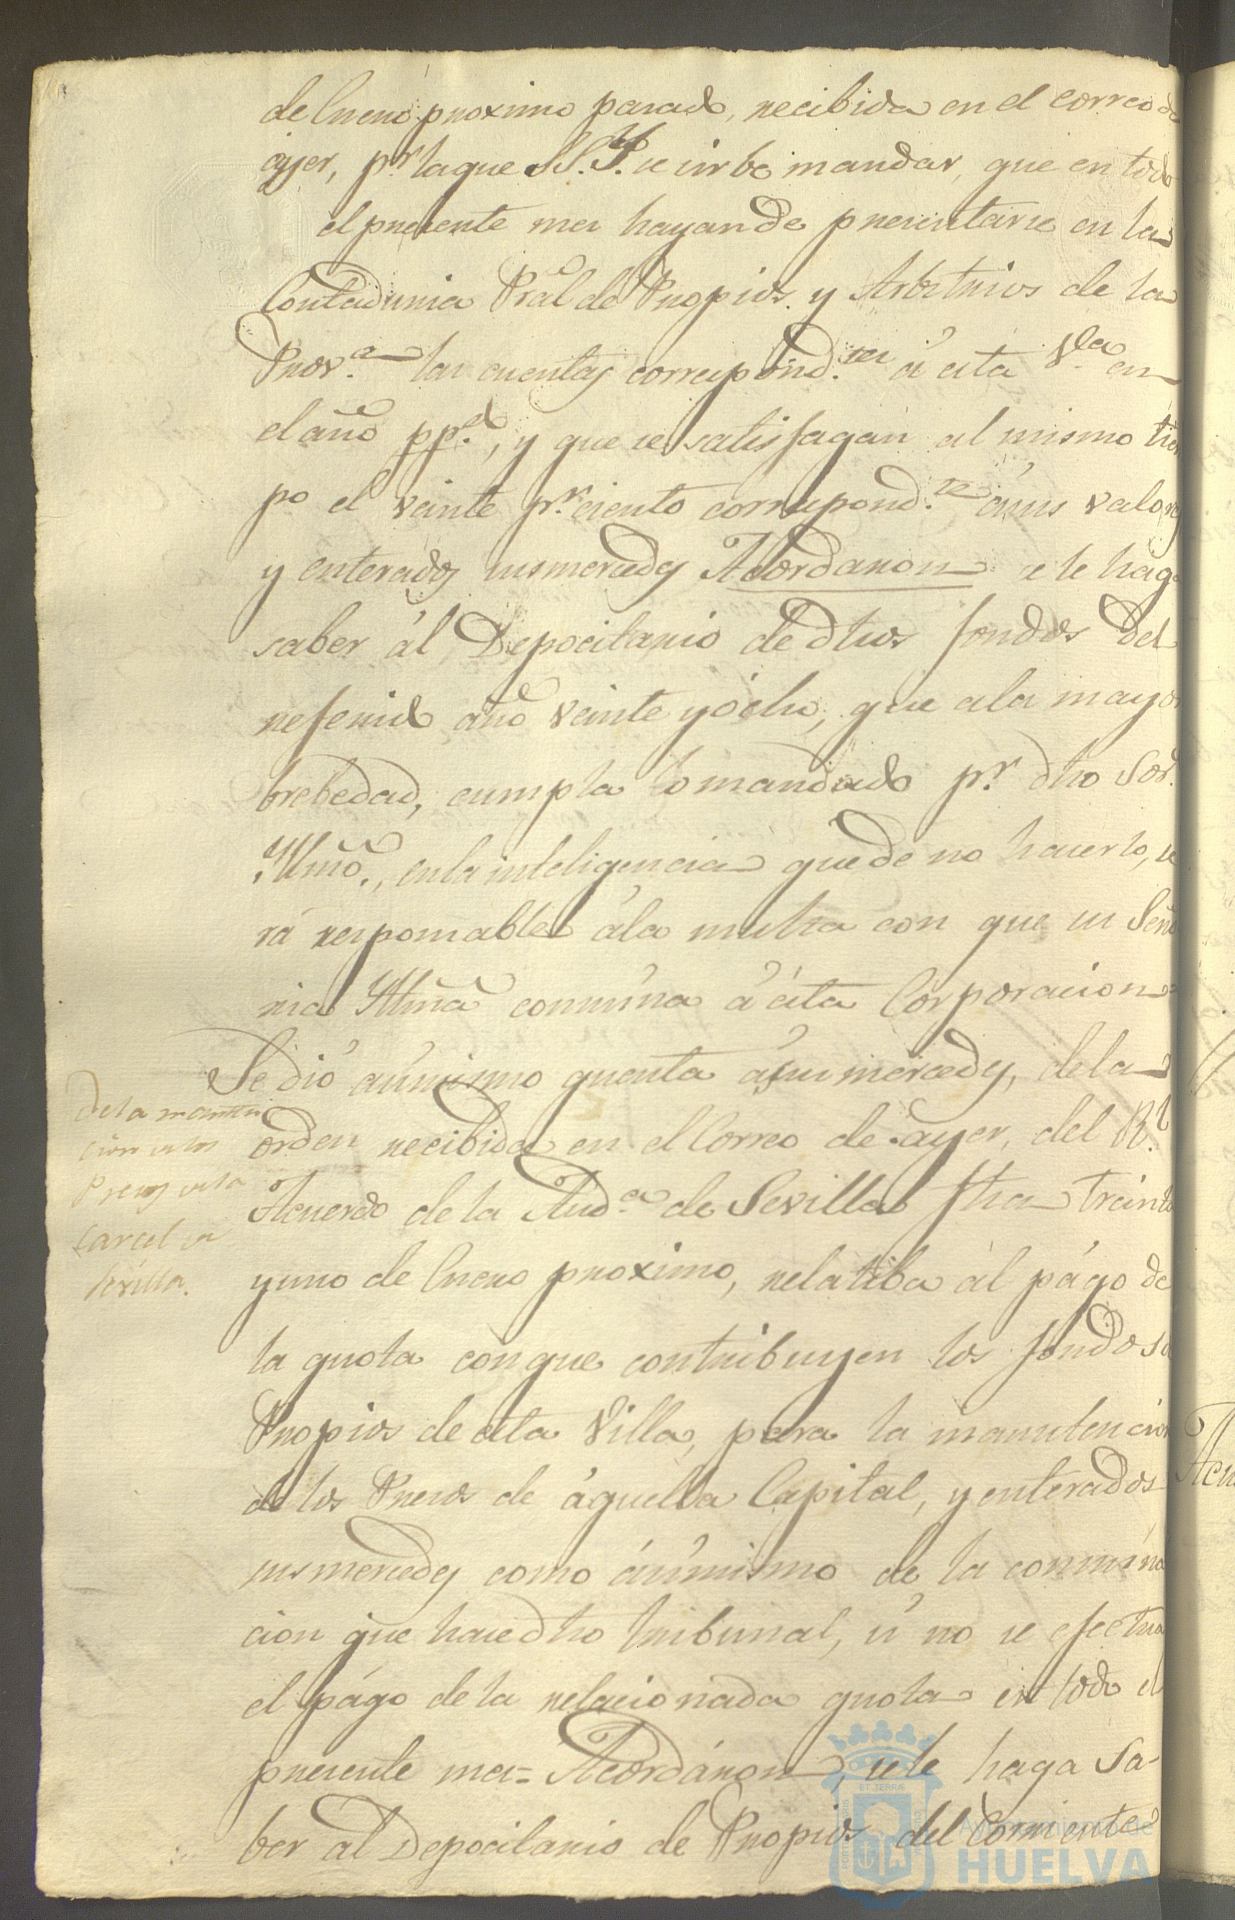 de Enero proximo pasado, recibida en el correo de
ayer, pr. la que S.S.Y. se sirbe mandar, que en todo
el presente mes hayan de presentarse en la
Contaduria Pral de Propios y Arbitrios de la
Prov.a las cuentas correspond.tes á esta V.a en
el año pp.do, y que se satisfagan al mismo tiem
po el veinte pr. ciento correspond.te á sus valores
y enterados sus mercedes Acordaron se le haga
saber ál Depocitario de dhos fondos del
referido año veinte y ócho, que a la mayor
brebedad, cumpla lo mandado pr. dho Sor.
Yllmõ., en la inteligencia que de no hacerlo, se
rá responsable ála multa con que su Seño
ria Yllmã conmina á ésta Corporacion
Se dió asimismo quenta á sus mercedes, de la
orden recibida en el Correo de ayer, del Rl.
Acuerdo de la Aud.a de Sevilla fha treinta
y uno de Enero proximo, relatiba al págo de
la quota con que contribuyen los fondos de
Propios de esta Villa, para la manutencion
de los Presos de áquella Capital, y enterados
sus mercedes como ásimismo de la conmina
cion que hace dho tribunal, si no se efectua
el págo de la relacionada quota en todo el
presente mes= Acordáron, se le haga Sa-
ber al Depocitario de Propios del Corriente
De la manten
cion de los
Presos de la
Carcel de
Sevilla.
Ayuntamiento de
HUELVA